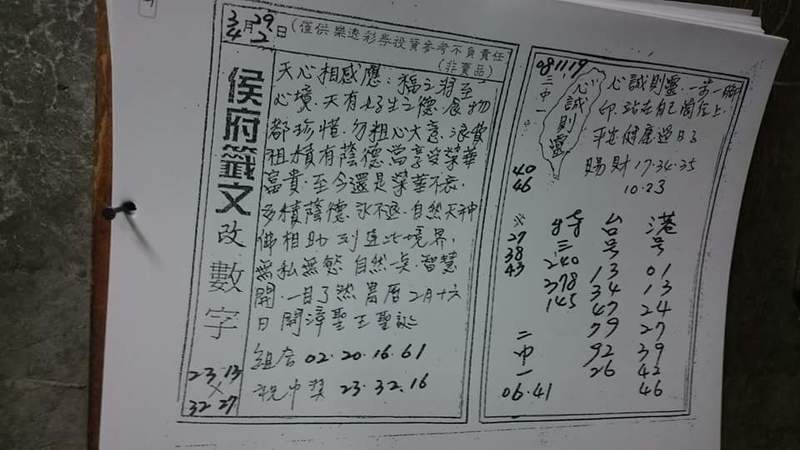 3/29日
4月2
(僅供樂透彩券投資參考不負責任
(非賣品)
侯府籤文改數字
23·13
×
32·27
天心相感應:福之將至
心境·天有好生之德·食物
都珍惜·勿粗心大意·浪費
祖積有蔭德當享受榮華
富貴·至今還是榮華不衰·
多積蔭德·永不退·自然天神
佛相助到達此境界·
無私無慾自然一点智慧
開·一目了然農曆2月十六
日開漳聖王聖誕
組合02·20·16·61
祝中獎23·32·16
08 11 19
三中一
40
46
心誠則靈
心誠則靈·一步一腳
印·站在自己崗位上·
平安健康過日子
賜財17·34·35
10·23
※
27
38
43
二中一
06·41
特三
240
278
145
台号
13
34
47
79
92
26
港号
01
13
24
27
39
42
46